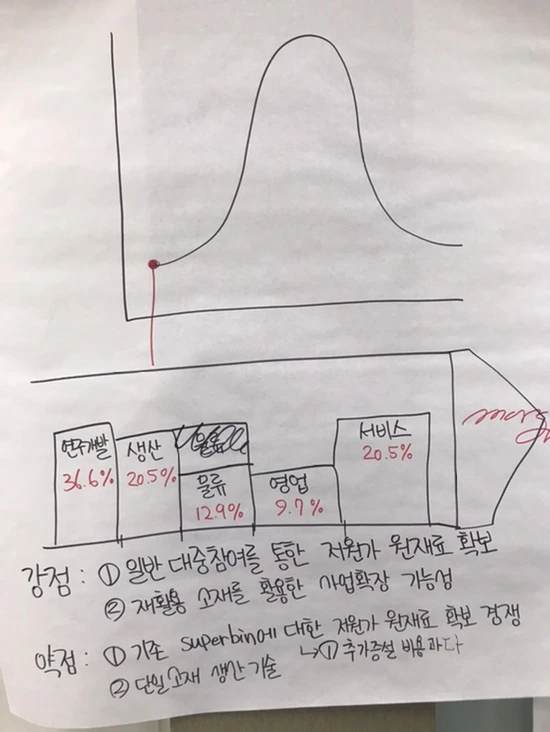 연구개발
36.6%
생산
20.5%
물류
12.9%
영업
9.7%
서비스
20.5%
강점 : ① 일반 대중참여를 통한 저원가 원재료 확보
② 재활용 소재를 활용한 사업확장 가능성
약점 : ① 기존 superbin에 대한 저원가 원재료 확보 경쟁
↳① 추가증설 비용과다
② 단일소재 생산기술